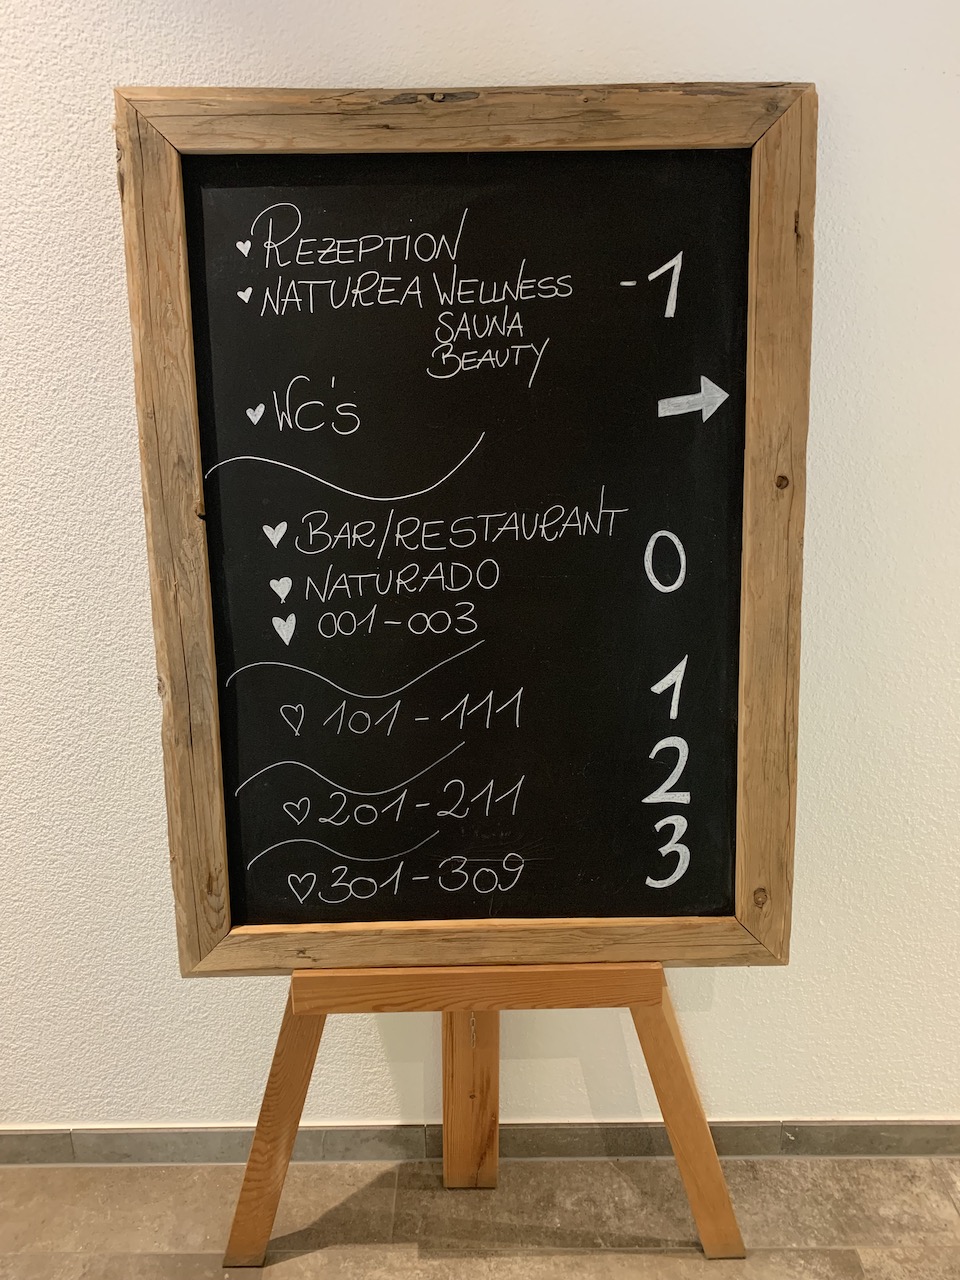 REZEPTION
NATUREA WELLNESS -1
SAUNA
BEAUTY
WC'S
BAR/RESTAURANT
NATURADO 0
001-003
101-111 1
201-211 2
301-309 3